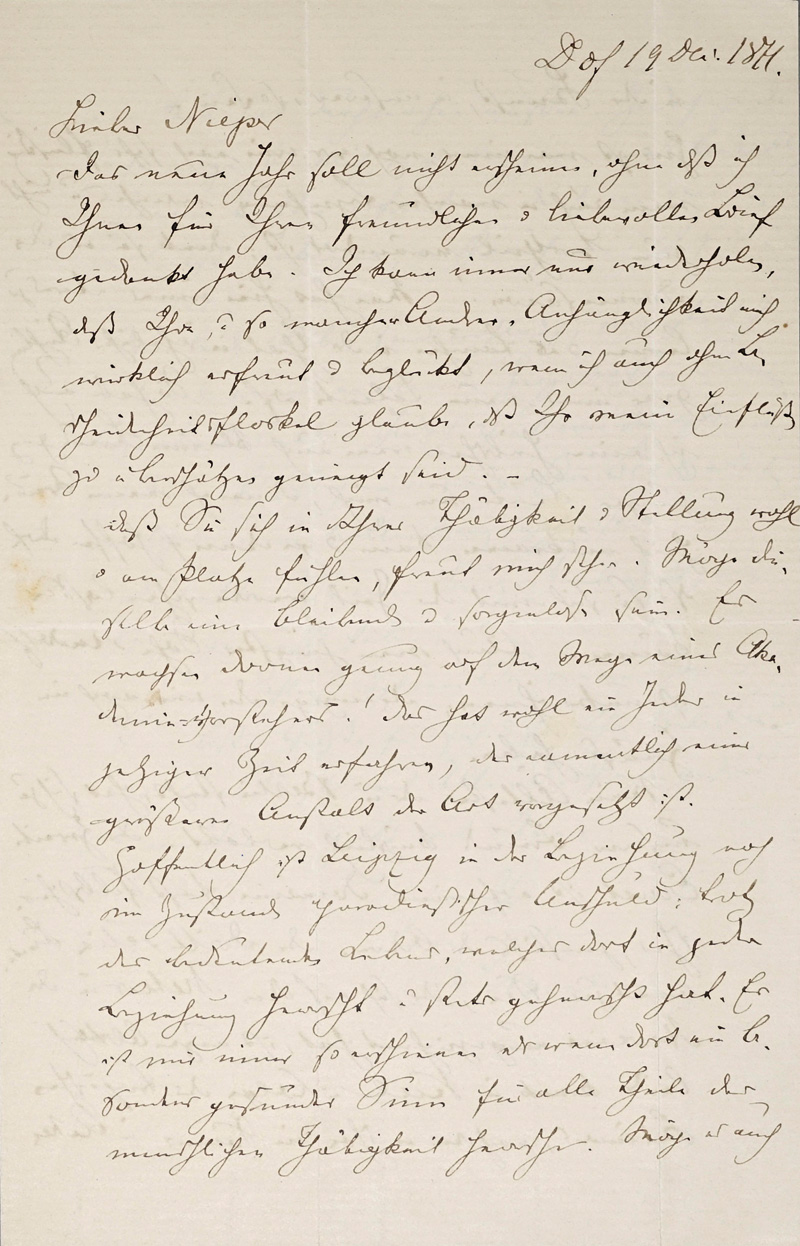 Ddf 19 Dec. 1871.
Lieber Nieper
Das neue Jahr soll nicht erscheinen, ohne daß ich
Ihnen für Ihren freundlichen & liebevollen Brief
gedankt habe. Ich kann immer nur wiederholen,
daß Ihre, & so mancher Andrer, Anhänglichkeit mich
wirklich erfreut & beglückt, wenn ich auch ohne Be„
scheidenheitsfloskel glaube, daß Ihr mein Einfluß
zu überschätzen geneigt seid. –
daß Sie sich in Ihrer Thätigkeit & Stellung wohl
& am Platze fühlen, freut mich sehr. Möge die„
selbe eine bleibende & sorgenlose sein. Es
wachsen Dornen genug auf dem Wege eines Aka„
demie-Vorstehers! das hat wohl ein Jeder in
jetziger Zeit erfahren, der namentlich einer
größeren Anstalt der Art vorgesetzt ist.
Hoffentlich ist Leipzig in der Beziehung noch
im Zustande paradiesischer Unschuld; trotz
des bedeutenden Lebens, welches dort in jeder
Beziehung herrscht & stets geherrscht hat. Es
ist mir immer so erschienen als wenn dort ein be„
sonders gesunder Sinn für alle Theile der
menschlichen Thätigkeit herrsche. Möge es auch